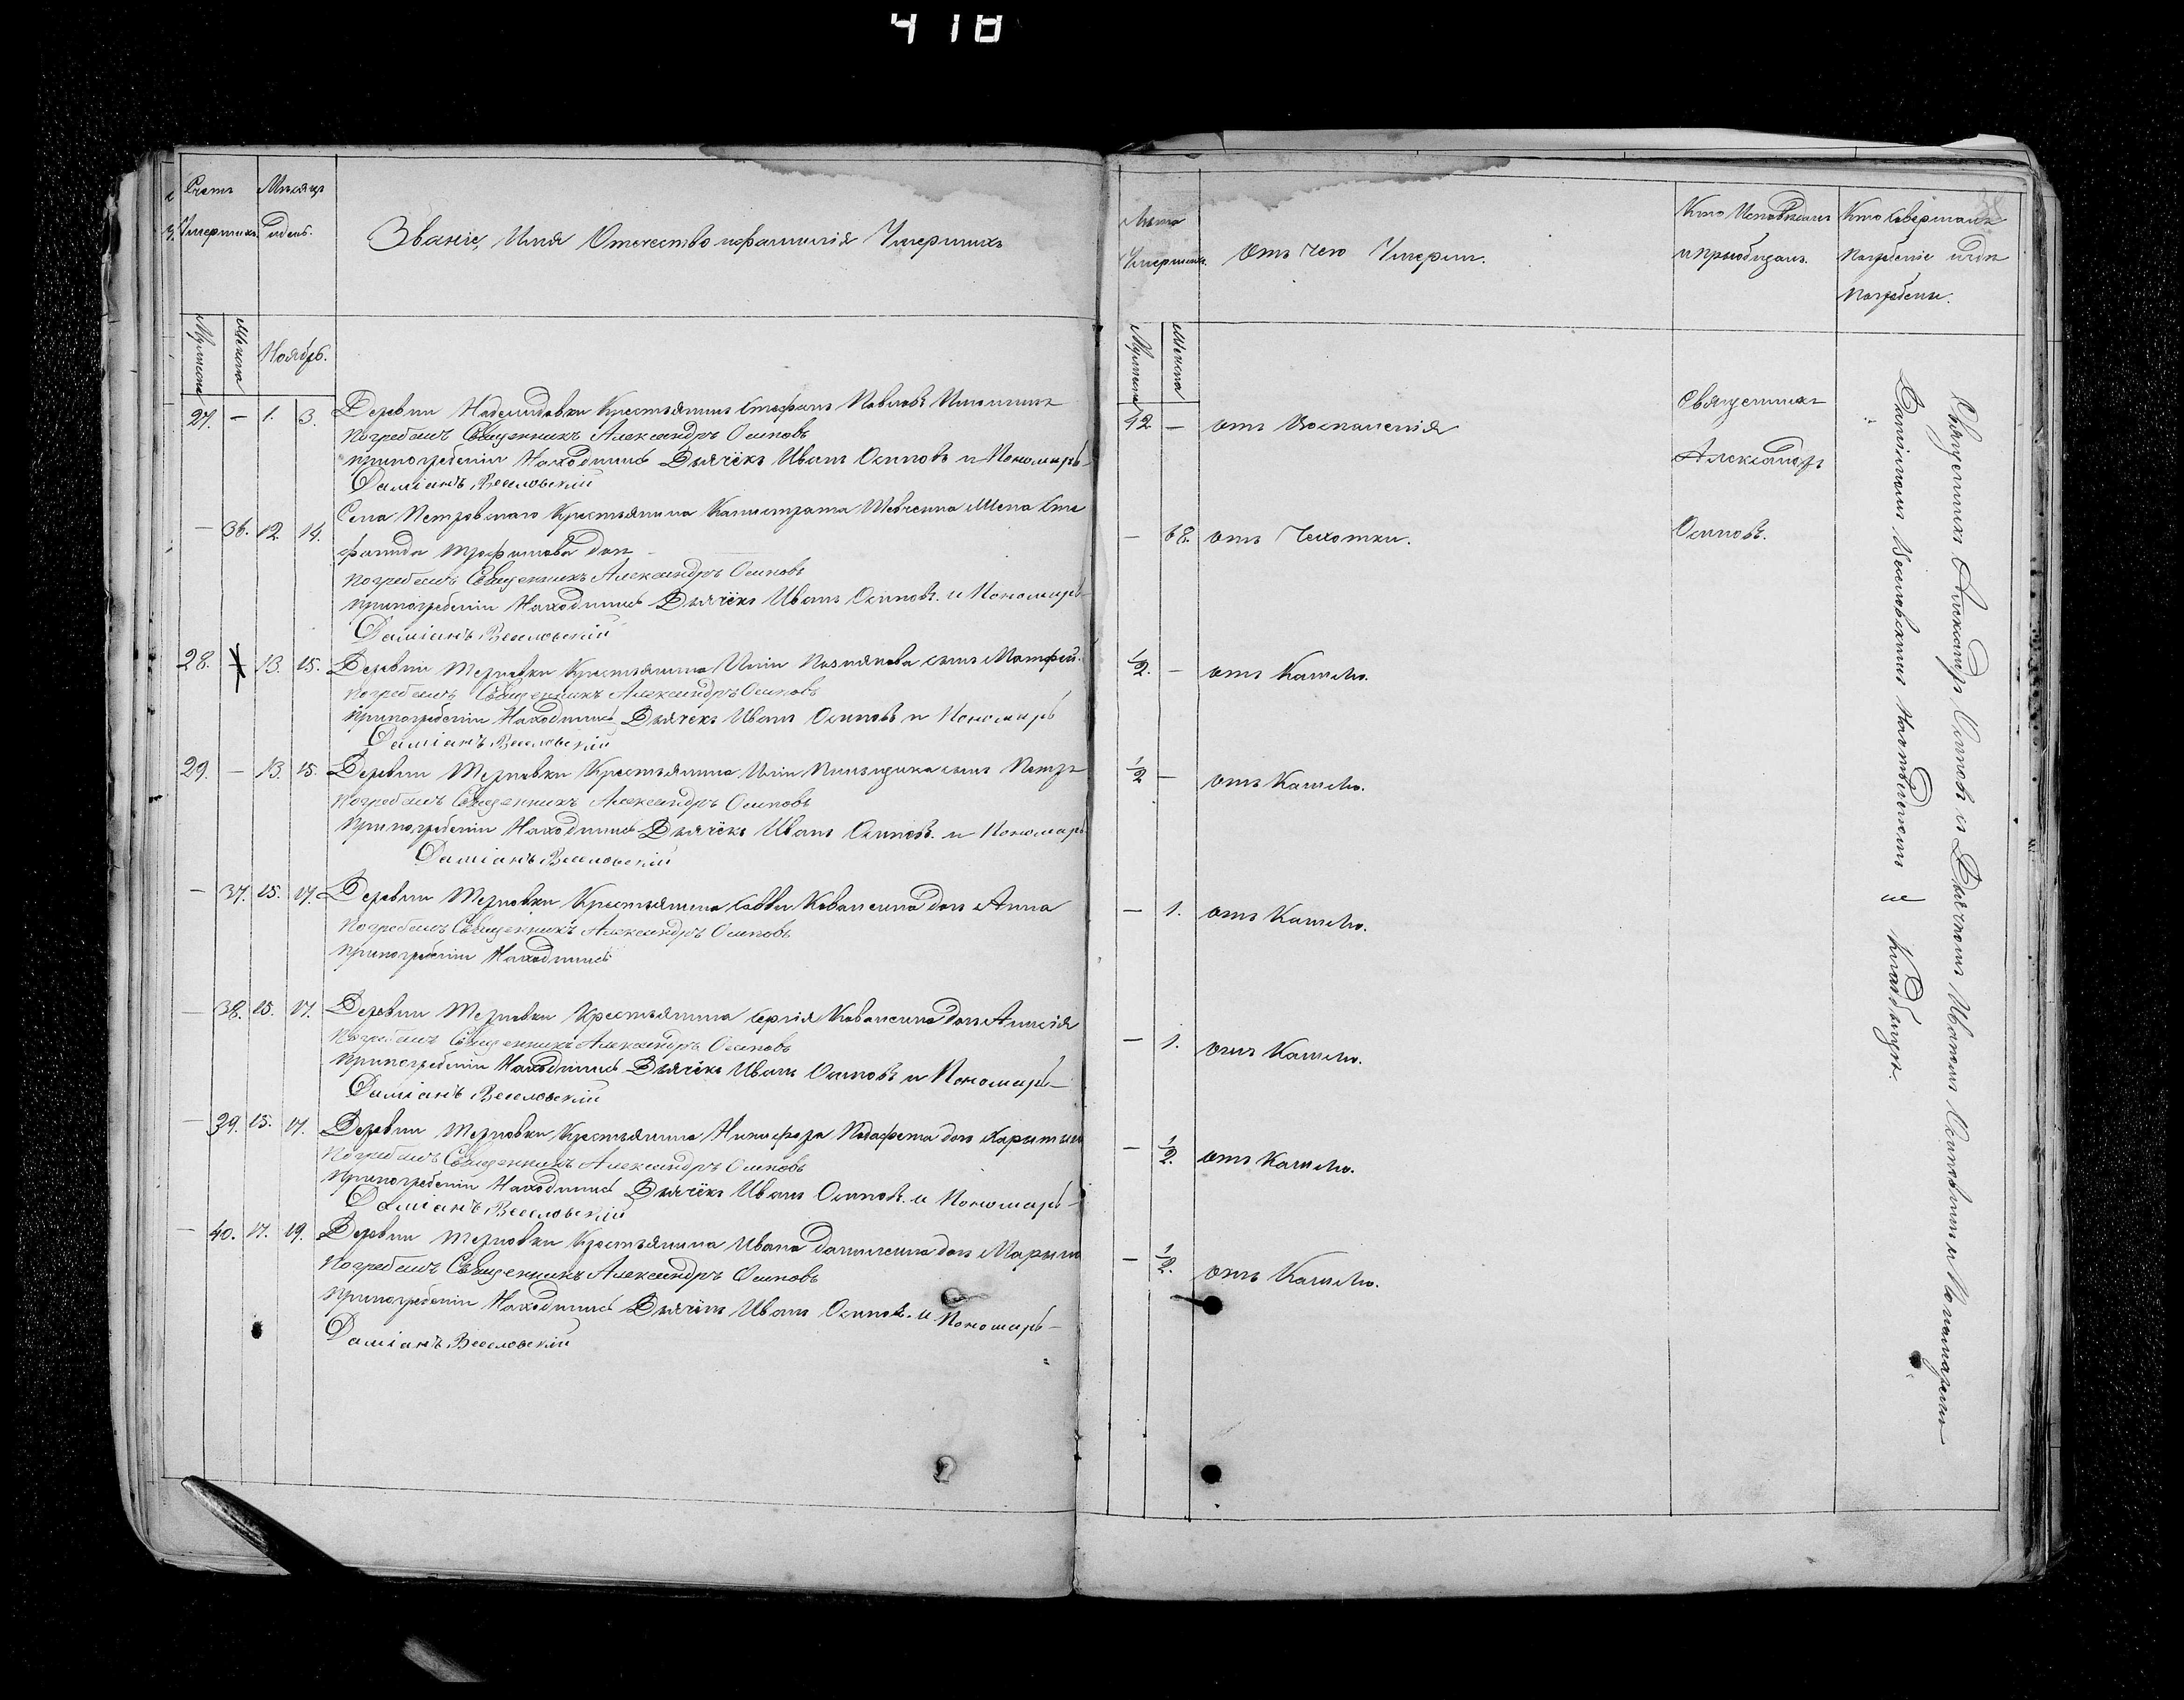 418
Счетъ Умершихъ.
Месяцъ и день.
Званіе, Имя Отечество и фамилія Умершихъ
Мужеска
Женска
Ноябрь.
27. — 1. 3. Деревни Крестьянинъ Стефанъ Павловъ
Погребалъ Священникъ Александръ Осиповъ
При погребеніи Находились Дьячёкъ Иванъ Осиповъ и Пономарь
Даміанъ Веселовскій
— 36. 12. 14. Села Петровскаго Крестьянина Калистрата Шевченка Жена Сте
фанида Трофимова дочь
Погребалъ Священникъ Александръ Осиповъ
При погребеніи Находились Дьячёкъ Иванъ Осиповъ. и Пономарь
Даміанъ Веселовскій
28. — 13. 15. Деревни Терновки Крестьянина Иліи сынъ Матфей.
Погребалъ Священникъ Александръ Осиповъ
При погребеніи Находились Дьячекъ Иванъ Осиповъ и Пономарь
Даміанъ Веселовскій
29. — 13. 15. Деревни Терновки Крестьянина Иліи сынъ Петръ
Погребалъ Священникъ Александръ Осиповъ
При погребеніи Находились Дьячёкъ Иванъ Осиповъ. и Пономарь
Даміанъ Веселовскій
— 37. 15. 17. Деревни Терновки Крестьянина Саввы Коваленка дочь Анна
Погребалъ Священникъ Александръ Осиповъ
При погребеніи Находились
— 38. 15. 17. Деревни Терновки Крестьянина Сергія Коваленка дочь
Погребалъ Священникъ Александръ Осиповъ
При погребеніи Находились Дьячёкъ Иванъ Осиповъ и Пономарь
Даміанъ Веселовскій
— 39. 15. 17. Деревни Терновки Крестьянина Никифора дочь
Погребалъ Священникъ Александръ Осиповъ
При погребеніи Находились Дьячёкъ Иванъ Осиповъ. и Пономарь
Даміанъ Веселовскій
— 40. 17. 19. Деревни Терновки Крестьянина Ивана Даниленка дочь
Погребалъ Священникъ Александръ Осиповъ
При погребеніи Находились Дьячёкъ Иванъ Осиповъ. и Пономарь
Даміанъ Веселовскій
Лета Умершихъ.
Отъ чего Умерли.
Кто Исповедалъ и пріобщалъ.
Кто Совершалъ Погребеніе и где Погребены.
Мужеска
Женска
42 — отъ Воспаленія
— 68. отъ Чехотки.
1/2. — отъ Кашлю.
1/2 — отъ Кашлю.
— 1. отъ Кашлю.
— 1. отъ Кашлю.
— 1/2. отъ Кашлю.
— 1/2. отъ Кашлю.
Священникъ
Александръ
Осиповъ.
Священникъ Александръ Осиповъ съ Дьячкомъ Иваномъ Осиповымъ и Пономаремъ
Даміаномъ Веселовскимъ на Кладбище.